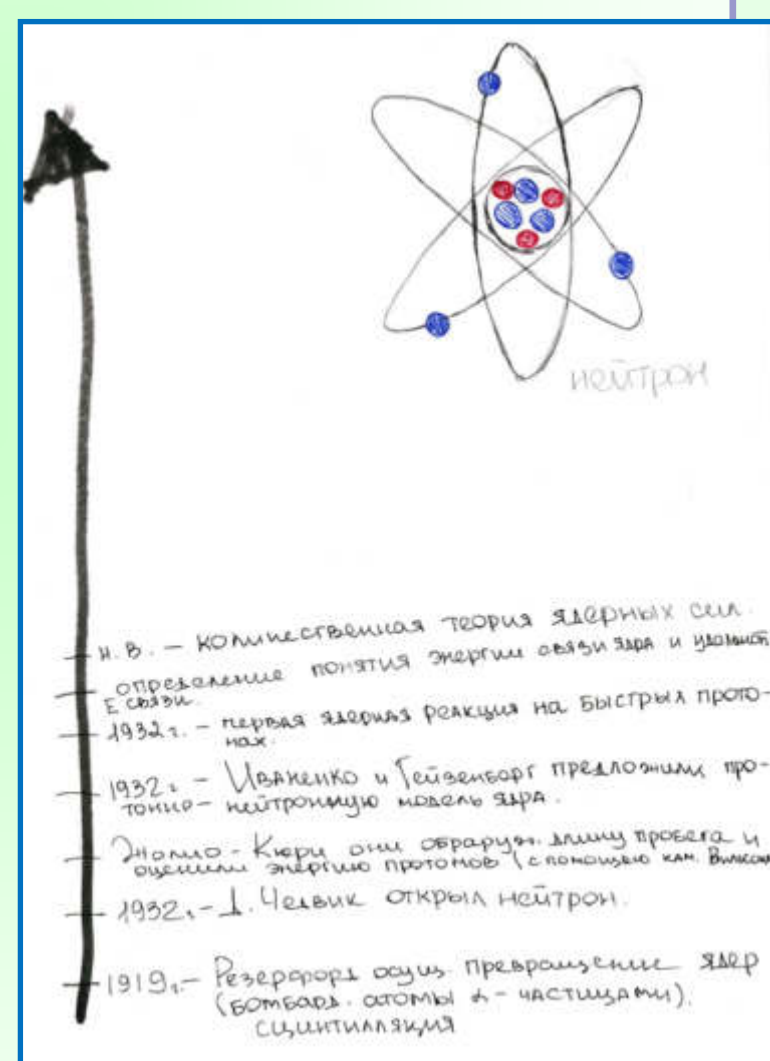 нейтрон
н.в. – количественная теория ядерных сил.
определение понятия энергии связи ядра и удельной
E связи.
1932г. – первая ядерная реакция на быстрых прото-
нах.
1932г – Иваненко и Гейзенберг предложили про-
тонно- нейтронную модель ядра.
Жолио-Кюри они обнаруж. длину пробега и
оценили энергию протонов (с помощью кам.
1932г. – Д. Чедвик открыл нейтрон.
1919г. – Резерфорд осущ. превращение ядер
(бомбард. атомы α-частицами).
сцинтилляция